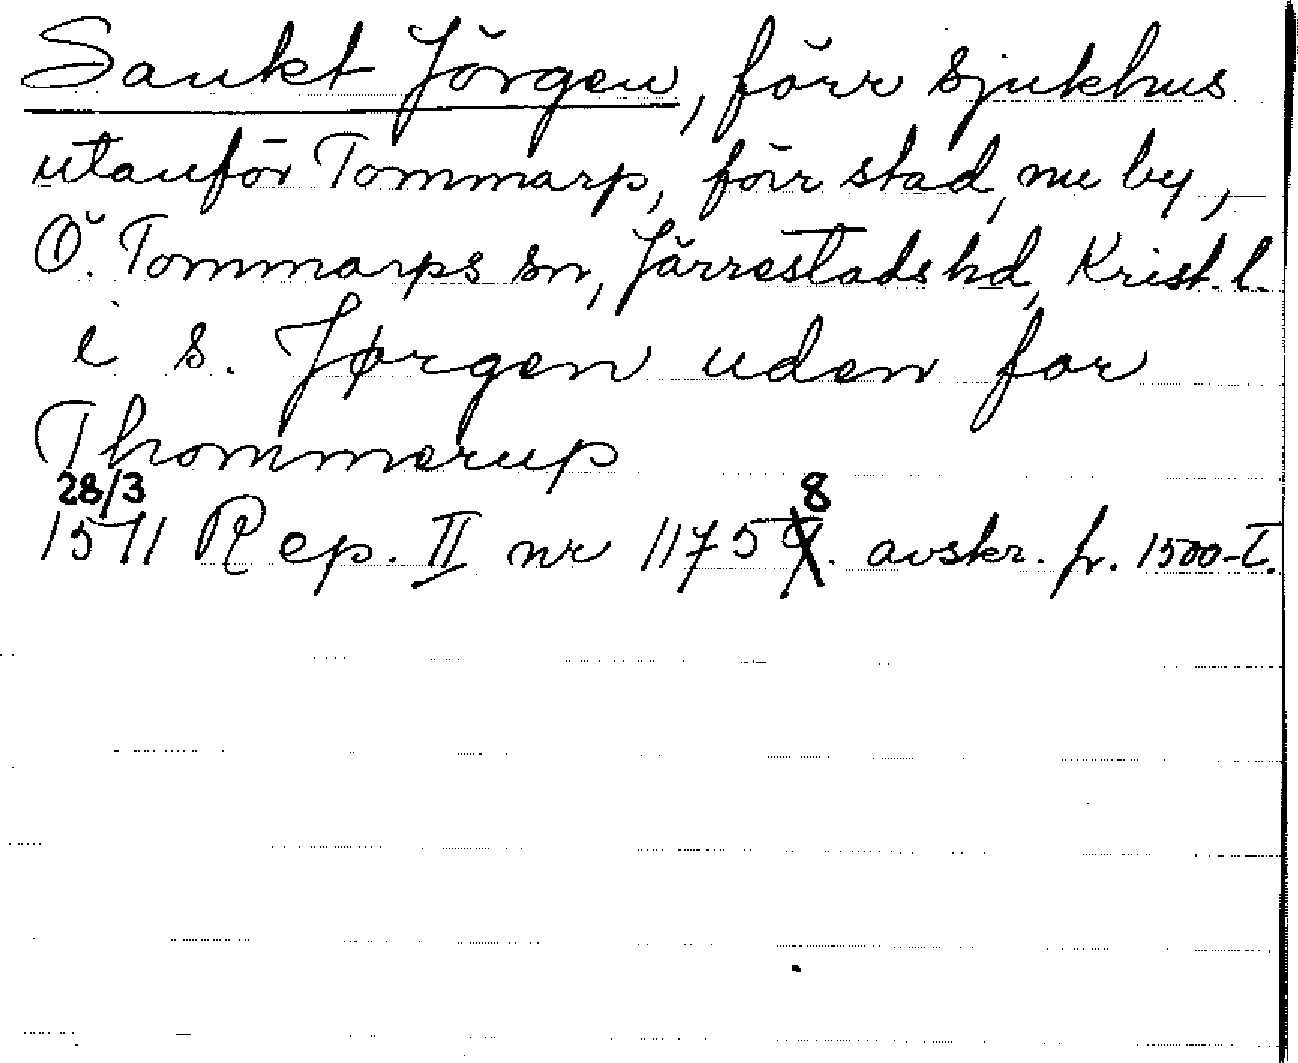 Sankt Jörgen, förr sjukhus
utanför Tommarp, förr stad, nu by,
Ö. Tommarps sn, Järrestads hd, Krist. l.
i s. Jørgen uden for
Thommerup
28/3
1511 Rep. II nr 11758. avskr. fr. 1500-t.